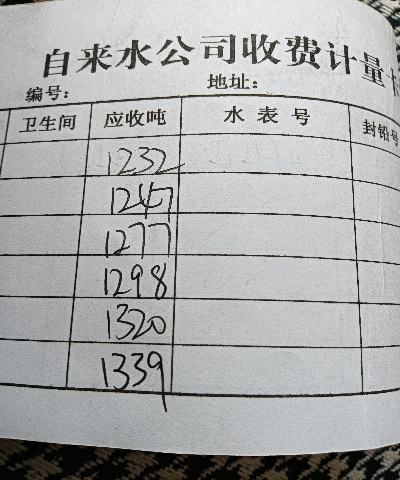 自来水公司收费计量卡
编号： 地址：
卫生间 应收吨 水表号 封铅号
1232
1247
1277
1298
1320
1339